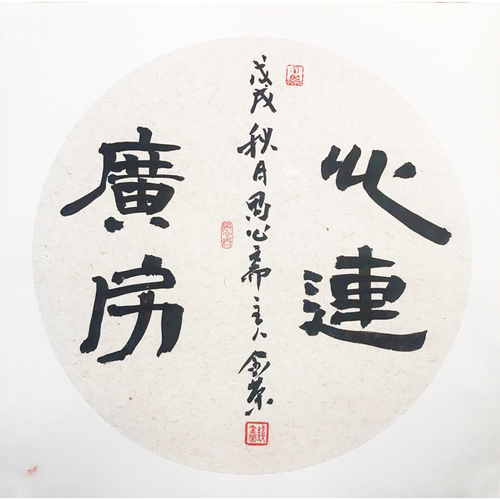 心連
廣房
戊戌秋月 心齋主人金榮